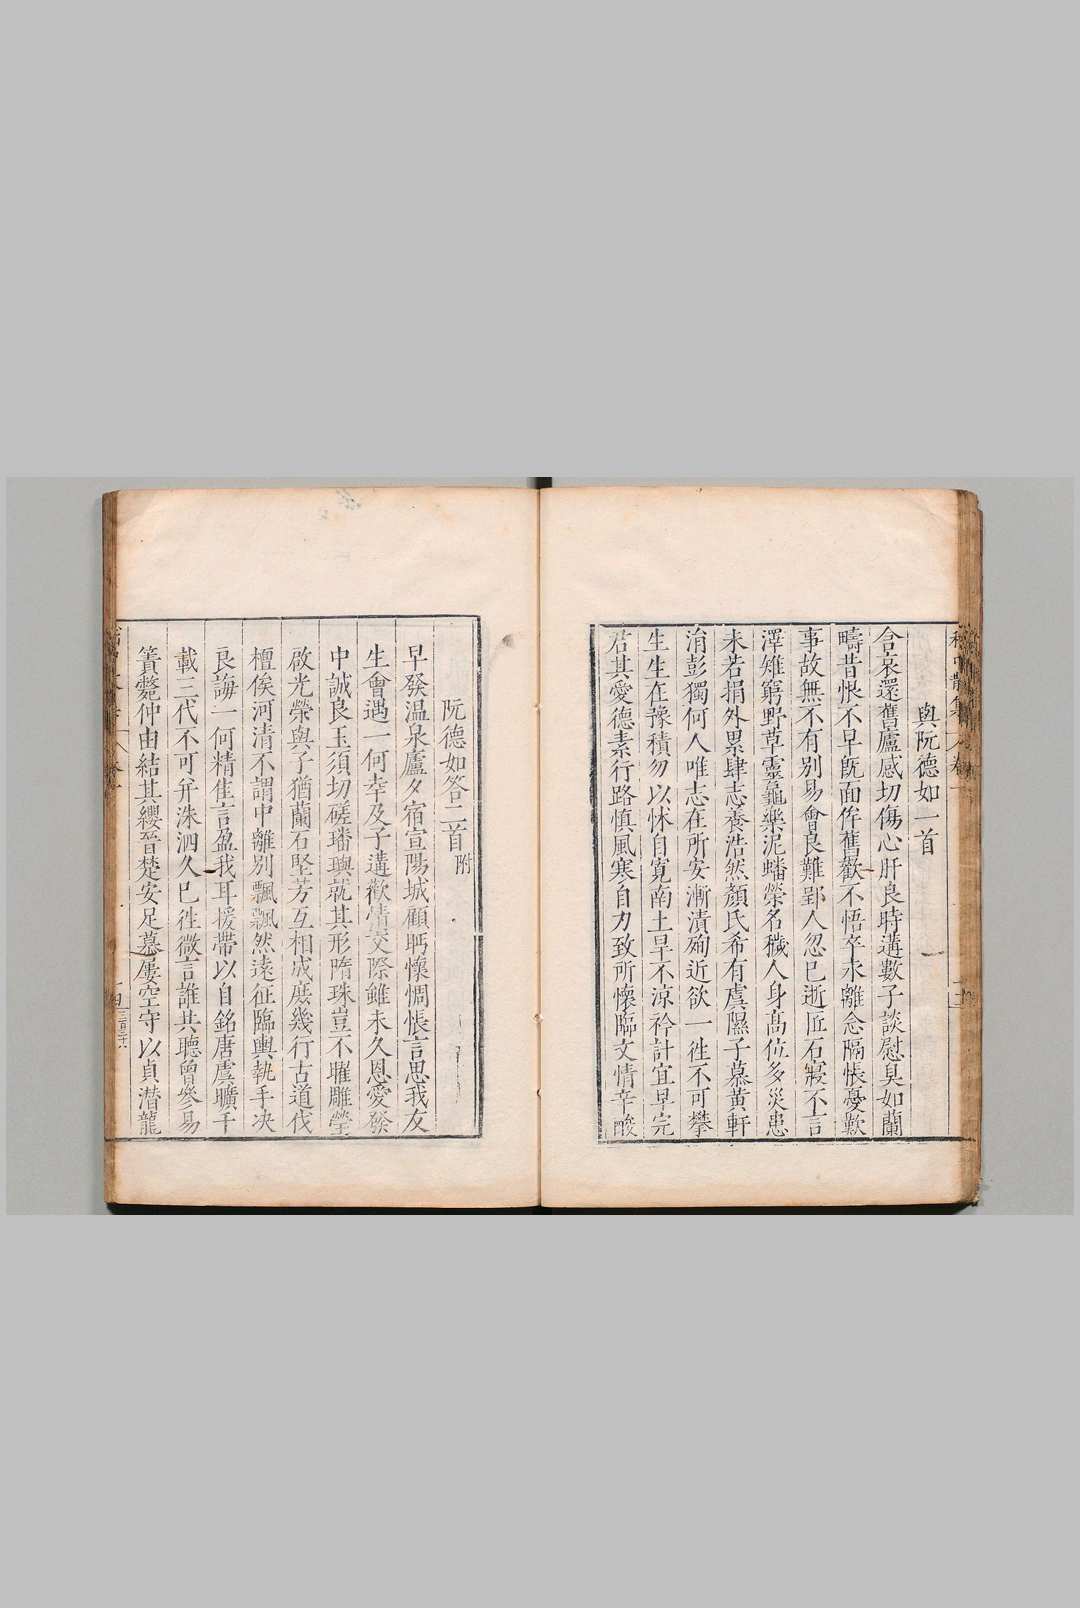 與阮德如一首
含哀還舊廬感切傷心肝良時遘數子談慰臭如蘭
疇昔恨不早旣面侔舊歡不悟卒永離念隔悵憂歎
事故無不有别易會良難郢人忽已逝匠石寢不言
澤雉窮野草靈龜樂泥蟠榮名穢人身高位多災患
未若捐外累肆志養浩然顏氏希有虞隰子慕黃軒
涓彭獨何人唯志在所安漸漬殉近欲一徃不可攀
生生在豫積勿以怵自寛南土旱不涼衿計宜早完
君其愛德素行路慎風寒自力致所懷臨文情辛酸
阮德如答二首 附
早發温泉廬夕宿宣陽城顧眄懷惆悵言思我友
生會遇一何幸及子遘歡情交際雖未久恩愛發
中誠良玉須切磋璠璵就其形隋珠豈不曜雕瑩
啟光榮與子猶蘭石堅芳互相成庶幾行古道伐
檀俟河清不謂中離别飄飄然遠征臨輿執手决
良誨一何精隹言盈我耳援帶以自銘唐虞曠千
載三代不可并洙泗久已徃微言誰共聽曾參易
簀斃仲由結其纓晉楚安足慕屢空守以貞潛龍